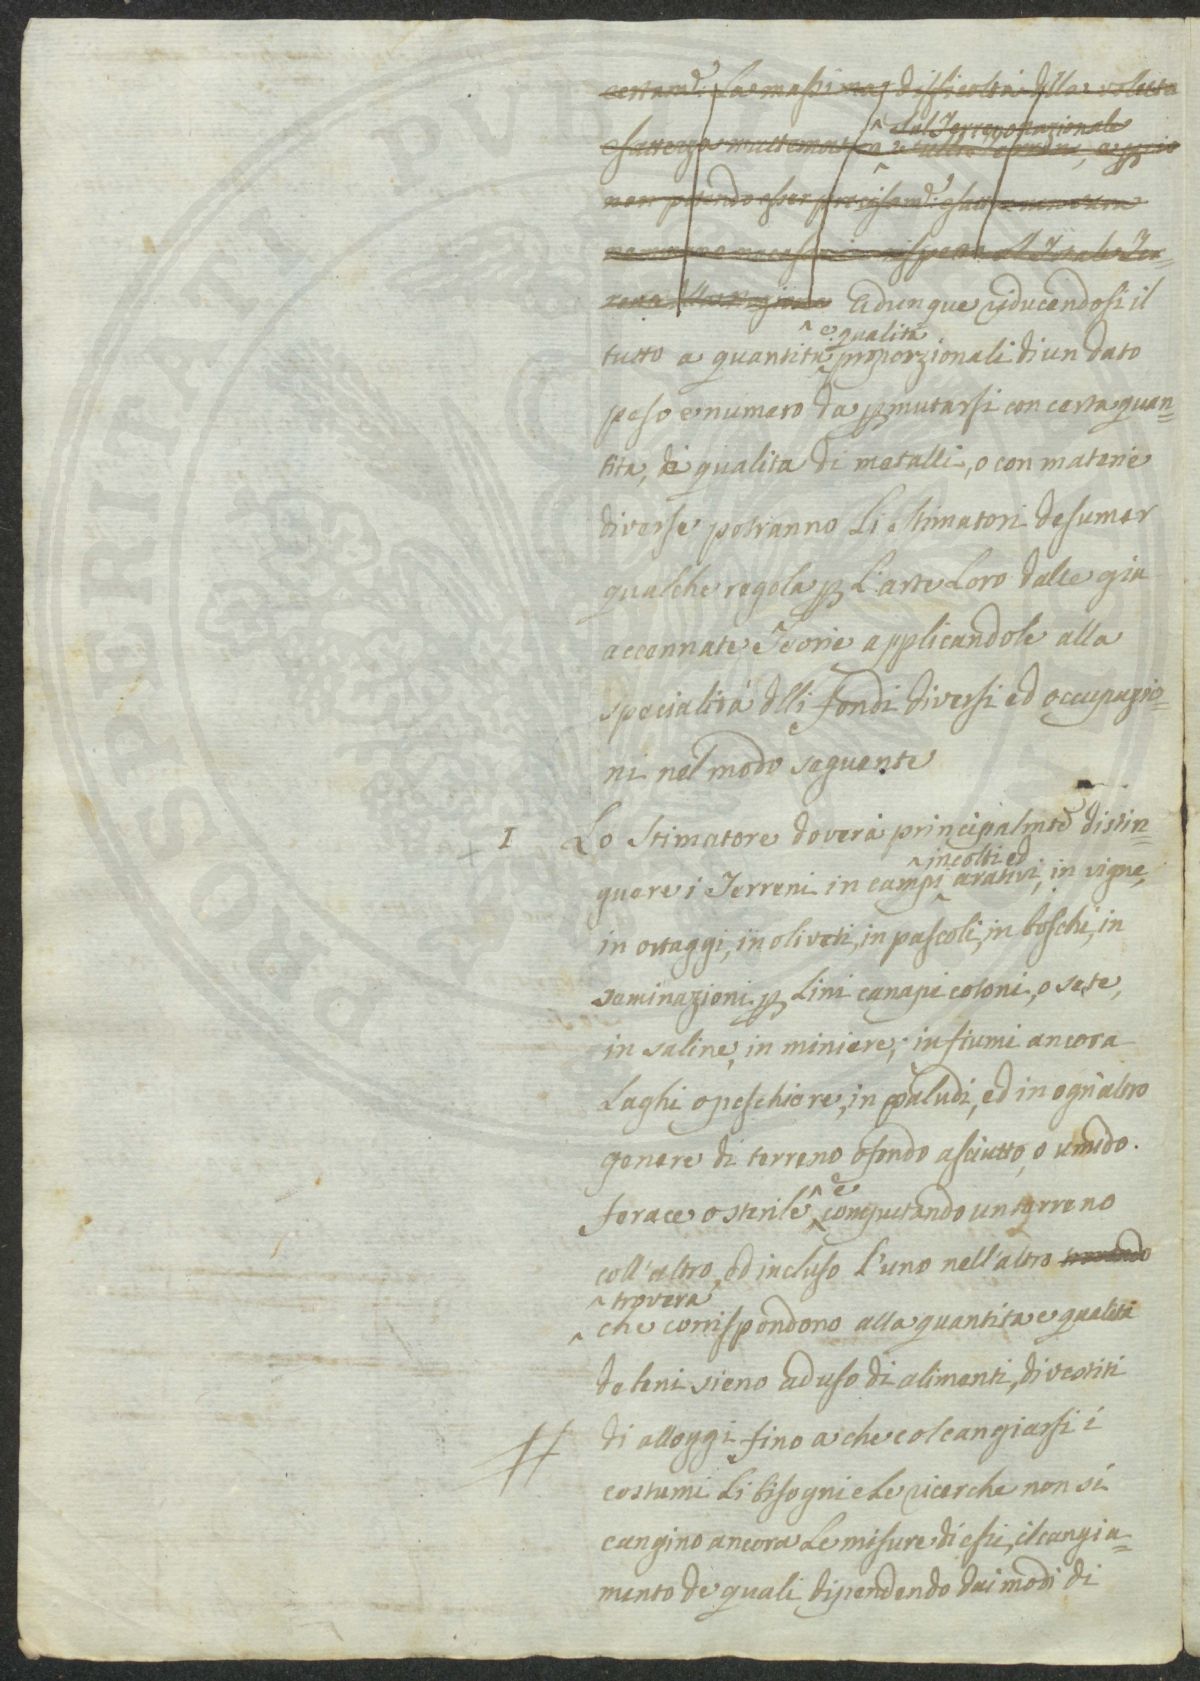 certam.e La massima difficoltà della voluta
esattezza mattematica
^ dal Terreno nazionale
non potendo esser precisam.e
nemmeno necessaria rispetto al Totale Ter=
reno della nazione Adunque riducendosi il
^ e qualità
tutto a quantità proporzionali di un dato
peso e numero da permutarsi con certa quan=
tita, e qualita di metalli, o con materie
diverse potranno li stimatori desumer
qualche regola per l'arte loro dalle già
accennate Teorie applicandole alla
specialità delli fondi diversi ed occupazio=
ni nel modo seguente
I Lo Stimatore doverà principalmte distin=
^ incolti ed
guere i Terreni in campi arativi, in vigne,
in ortaggi, in oliveti, in pascoli, in boschi, in
seminazioni per lini canapi cotoni, o sete,
in saline, in miniere, in fiumi ancora
Laghi o peschiere, in paludi, ed in ogni altro
genere di terreno o fondo asciutto, o umido.
^ e
ferace o sterile computando un terreno
coll'altro, ed incluso l'uno nell'altro trovando
^ troverà
che corrispondono alla quantita e qualità
de beni sieno ad uso di alimenti, di vestiti
di alloggi fino a che col cangiarsi i
costumi li bisogni e le ricerche non si
cangino ancora le misure di essi, il cangia=
mento de quali dipendendo dai modi di
PROSPERITATI PUBLICAE